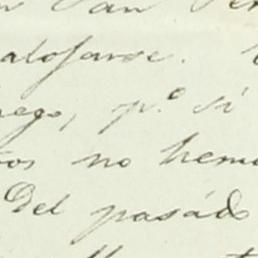 n San Fer
alojarse.
ego, p.º si
os no hem
Del pasádo